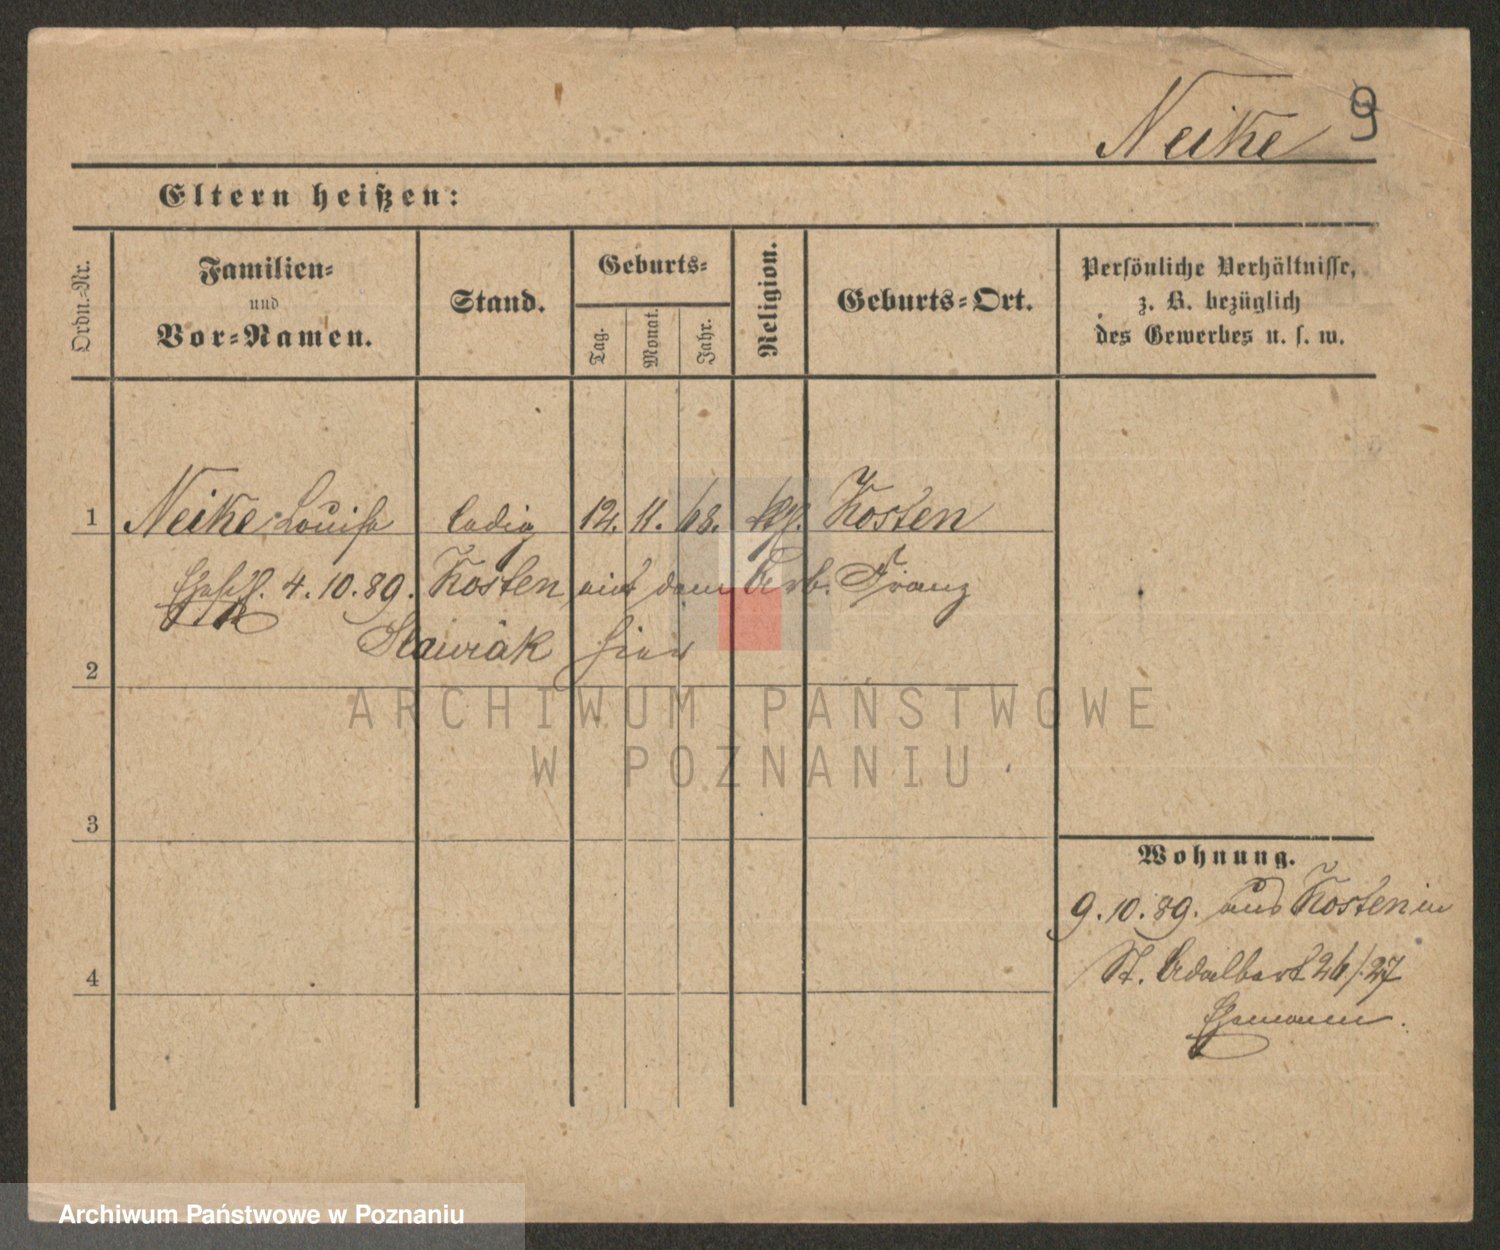 Neike 9
Eltern heißen:
Ordn.-Nr.
Familien-
und
Vor-Namen.
Stand.
Geburts-
Tag.
Monat.
Jahr.
Religion.
Geburts-Ort.
Persönliche Verhältnisse,
z. B. bezüglich
des Gewerbes u. s. w.
1 Neike Louise ledig 12. 11. 68. Kosten
4. 10. 89. Kosten mit dem Arb. Franz
Slawiak hier
2
3
4
Wohnung.
9. 10. 89. aus Kosten in
St. Adalbert 26/27
Ehemann.
ARCHIWUM PAŃSTWOWE
W POZNANIU
Archiwum Państwowe w Poznaniu